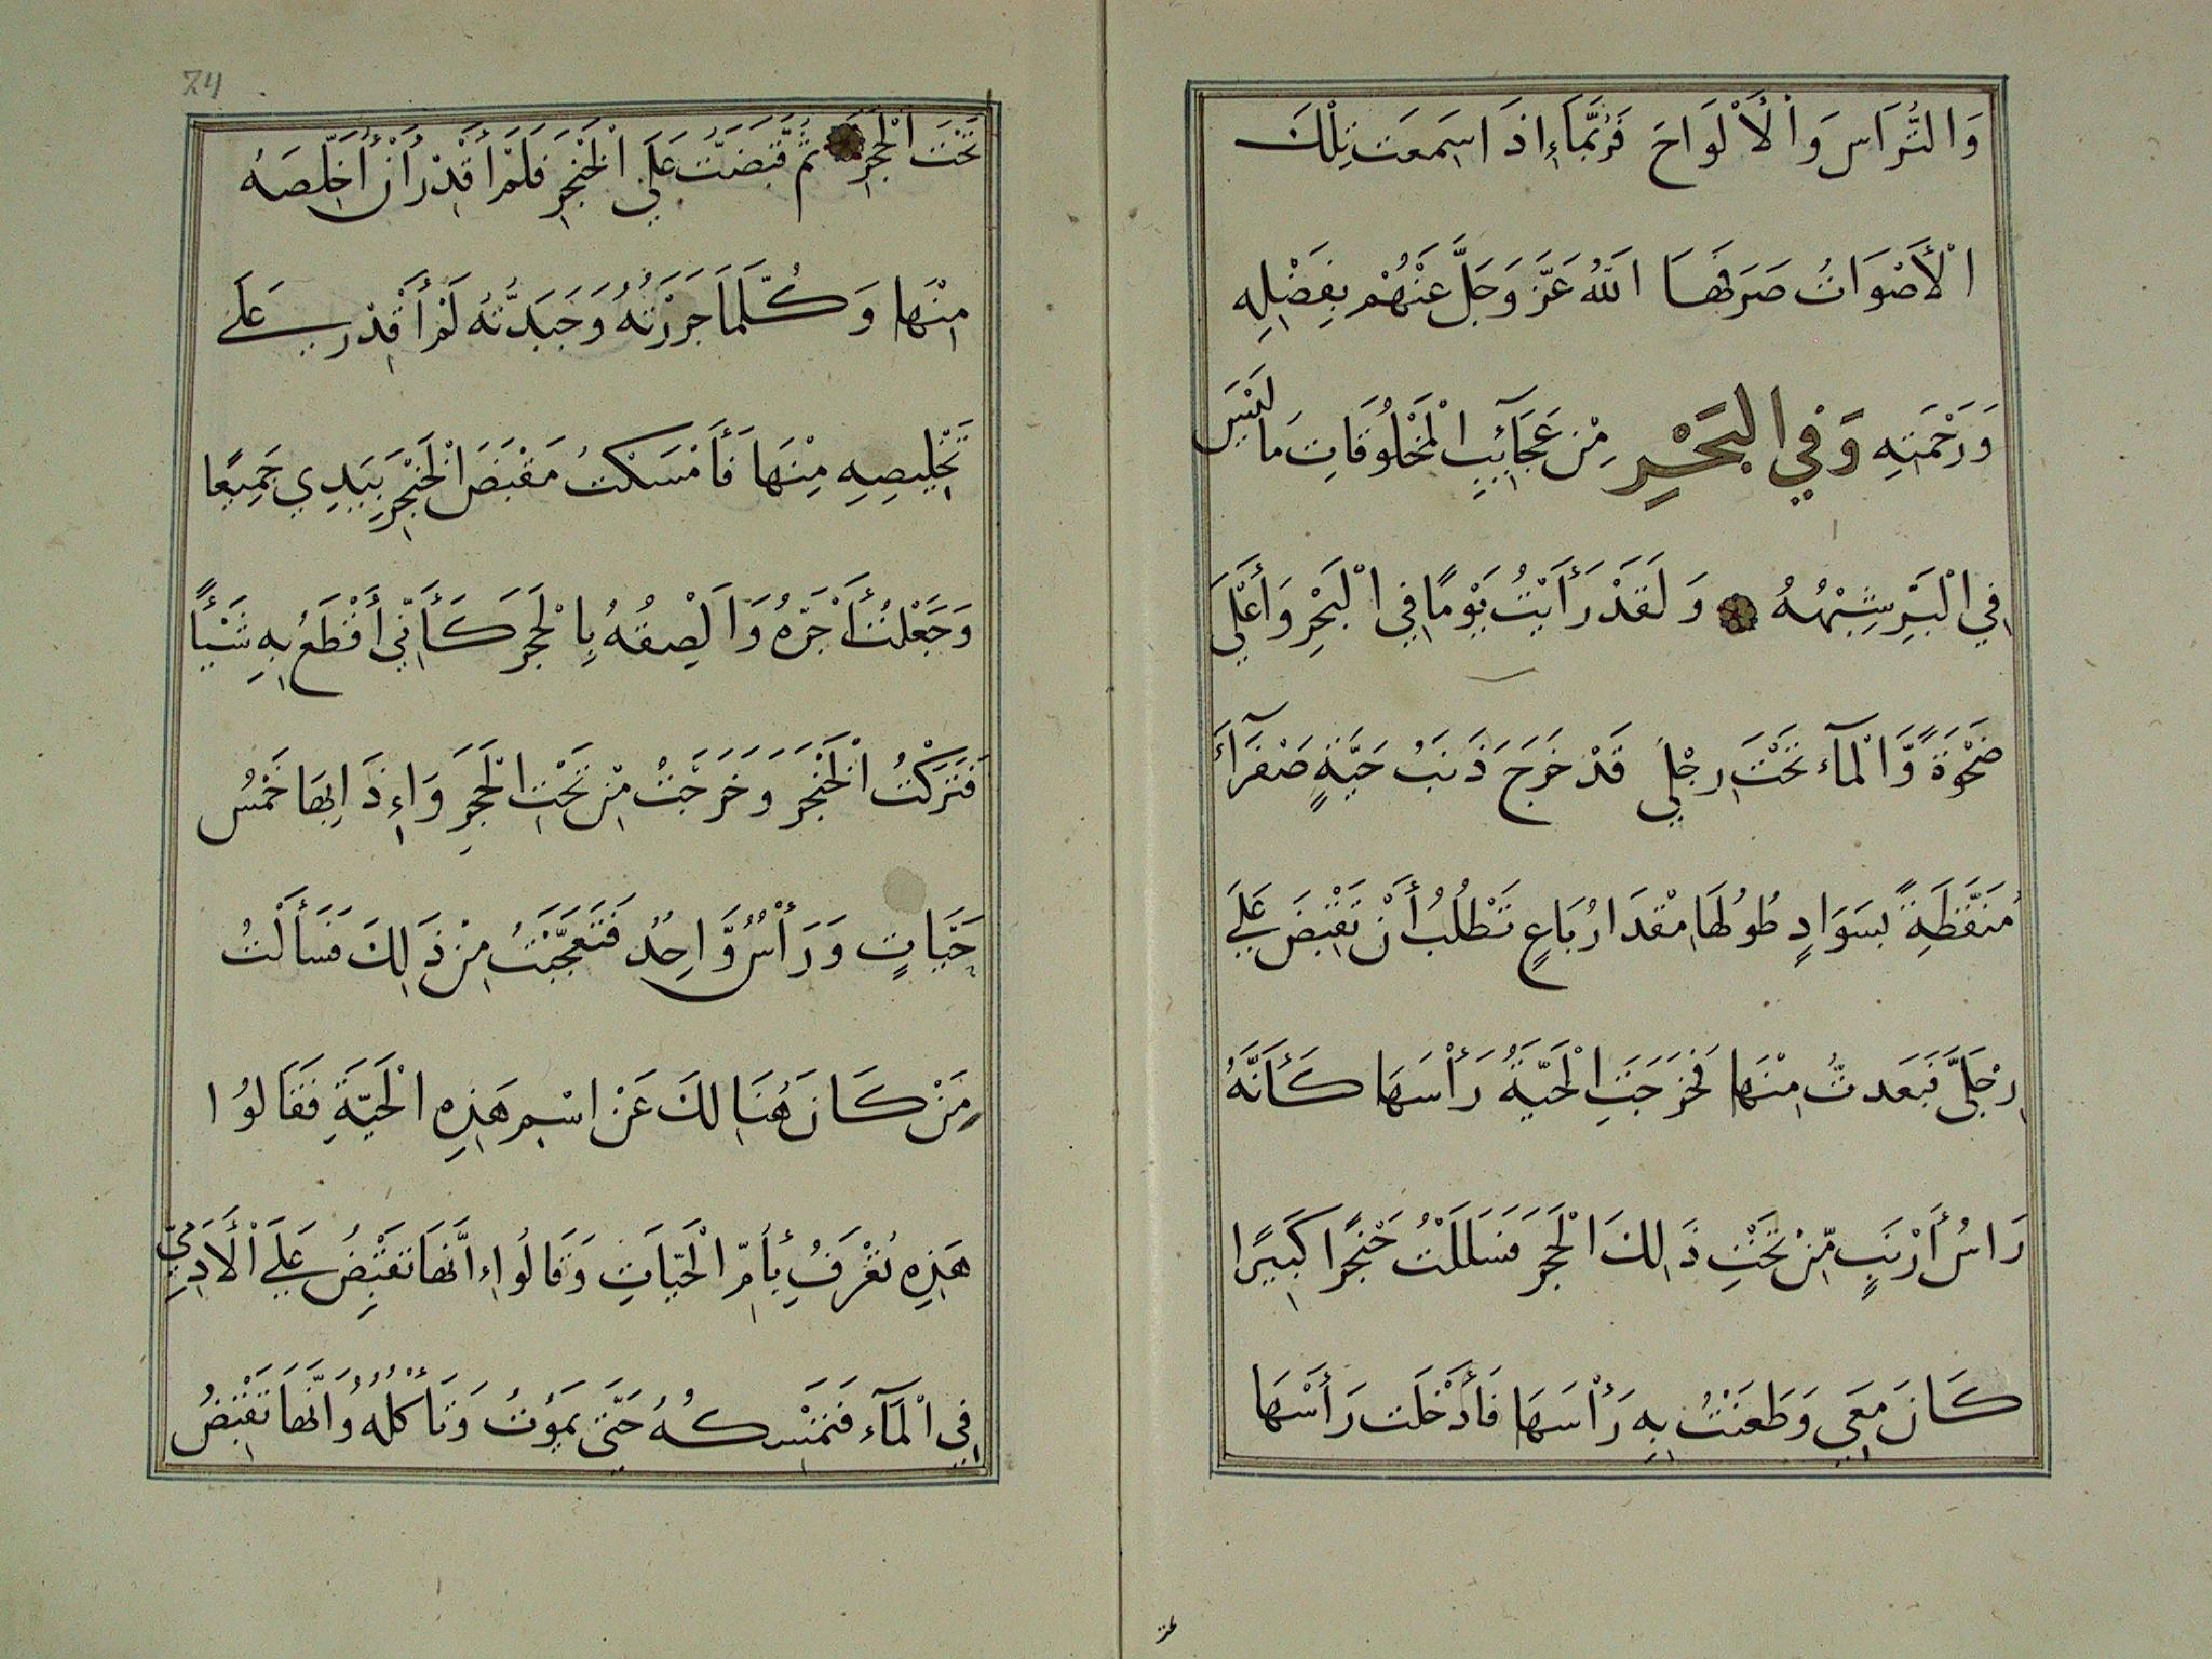 وَالتُّرَاسَ وَالْأَلْوَاحَ فَرُبَّمَاءِ اذَا سَمِعَت تِلْكَ
الْأَصْوَاتُ صَرَفَهَا اللهُ عَزَّ وَجَلَّ عَنْهُمْ بِفَضْلِهِ
وَرَحْمَتِهِ وَفِي الْبَحْرِ مِنْ عَجَآئِبِ الْمَخْلُوقَاتِ مَا لَيْسَ
فِي الْبَرِّ شِبْهُهُ وَلَقَدْ رَأَيْتُ يَوْمًا فِي الْبَحْرِ وَأَعْلَى
ضَحْوَةً وَّالْمَآء تَحْتَ رِجْلِي قَدْ خَرَجَ ذَنَبُ حَيَّةٍ صَفْرَآءَ
مُنَقَّطَةً بسَوَادٍ طُولُهَا مِقْدَارُ بَاعٍ تَطْلُبُ أَنْ تَقْبِضَ عَلَى
رِجْلَيَّ فَبَعَدتُّ مِنْهَا فَخَرَجَتِ الْحَيَّةُ رَأْسَهَا كَأَنَّهُ
رَاسُ أَرْنَبٍ مِّنْ تَحْتِ ذَالِكَ الْحَجَرِ فَسَلَلْتُ خَنْجَرًا كَبِيرًا
كَانَ مَعِي وَطَعَنْتُ بِهِ رَأْسَهَا فَأَدْخَلَت رَأْسَهَا
24
تَحْتَ الْحَجَرِ ثُمَّ قَبَضَتْ عَلَى الْخَنْجَرِ فَلَمْ أَقْدِرْ أَنْ أُخَلِّصَهُ
مِنْهَا وَكُلَّمَا جَرَرْتُهُ وَجَبَدتُّهُ لَمْ أَقْدِرْ عَلَى
تَخْلِيصِهِ مِنْهَا فَأَمْسَكْتُ مَقْبَضَ الْخَنْجَرِ بِيَدِي جَمِيعًا
وَجَعَلْتُ أَجُرُّهُ وَالْصِقُهُ بِالْحَجَرِ كَأَنِّي أَقْطَعُ بِهِ شَيْأً
فَتَرَكْتُ الْخَنْجَرَ وَخَرَجَتْ مِنْ تَحْتِ الْحَجَرِ وَاِذَا بِهَا خَمْسُ
حَيَّاتٍ وَرَأْسٌ وَّاحِدٌ فَتَعَجَّبْتُ مِنْ ذَالِكَ فَسَأَلْتُ
مَنْ كَانَ هُنَالِكَ عَنْ اسْمِ هَذِهِ الْحَيَّةِ فَقَالُوا
هَذِهِ تُعْرَفُ بِأُمِّ الْحَيَّاتِ وَقَالُوا اِنَّهَا تَقْبِضُ عَلَى الْأَدَمِيِّ
فِي الْمَآء فَتَمْسِكُهُ حَتَّى يَمُوتُ وَتَأْكُلُهُ وَانَّهَا تَقْبِضُ